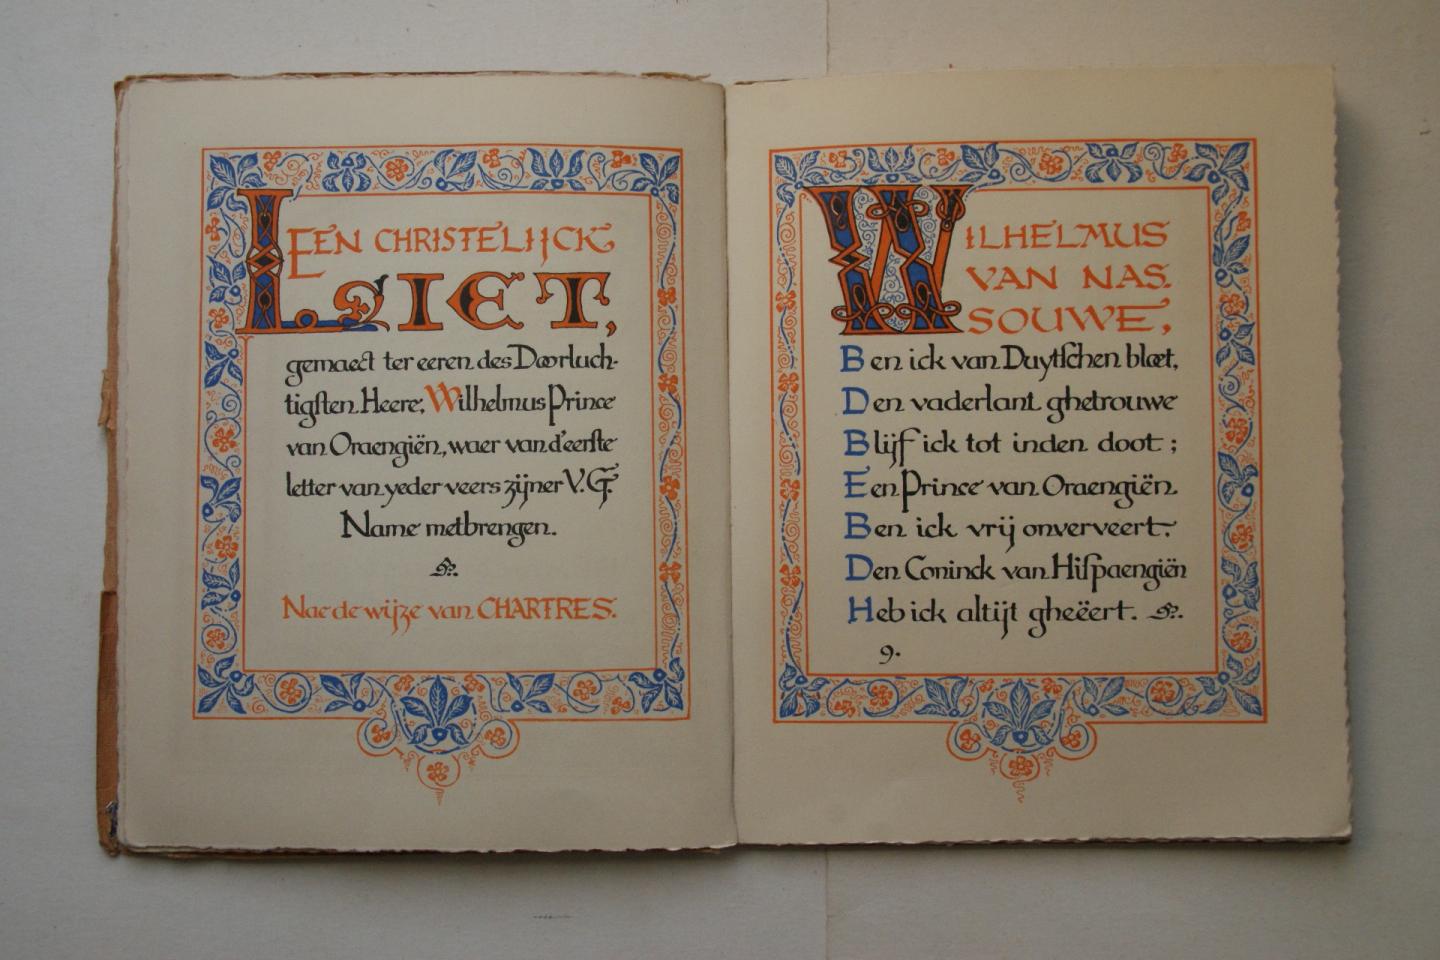 EEN CHRISTELIJCK
LIET,
gemaect ter eeren des Doorluch-
tigſten Heere, Wilhelmus Prince
van Oraengiën, waer van d'eerſte
letter van yeder veers zijner V.G.
Name metbrengen.
Nae de wijze van CHARTRES.
WILHELMUS
VAN NAS-
SOUWE,
Ben ick van Duytſchen bloet,
Den vaderlant ghetrouwe
Blijf ick tot inden doot;
Een Prince van Oraengiën
Ben ick vrij onverveert.
Den Coninck van Hiſpaengiën
Heb ick altijt gheëert.
9.